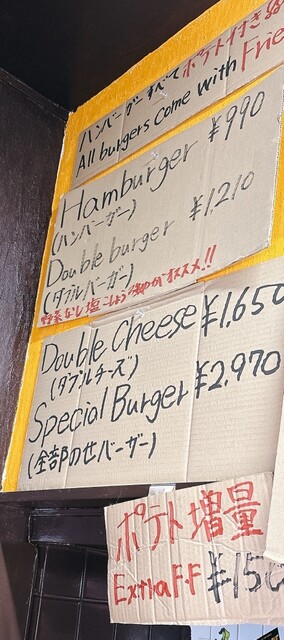 ハンバーガーすべてポテト付き
All burgers come with Frie
Hamburger ¥990
(ハンバーガー)
Double burger ¥1,210
(ダブルバーガー)
野菜なし塩こしょう強めがオススメ!!
Double Cheese ¥1,650
(ダブルチーズ)
Special Burger ¥2,970
(全部のせバーガー)
ポテト増量
Extra F.F ¥150